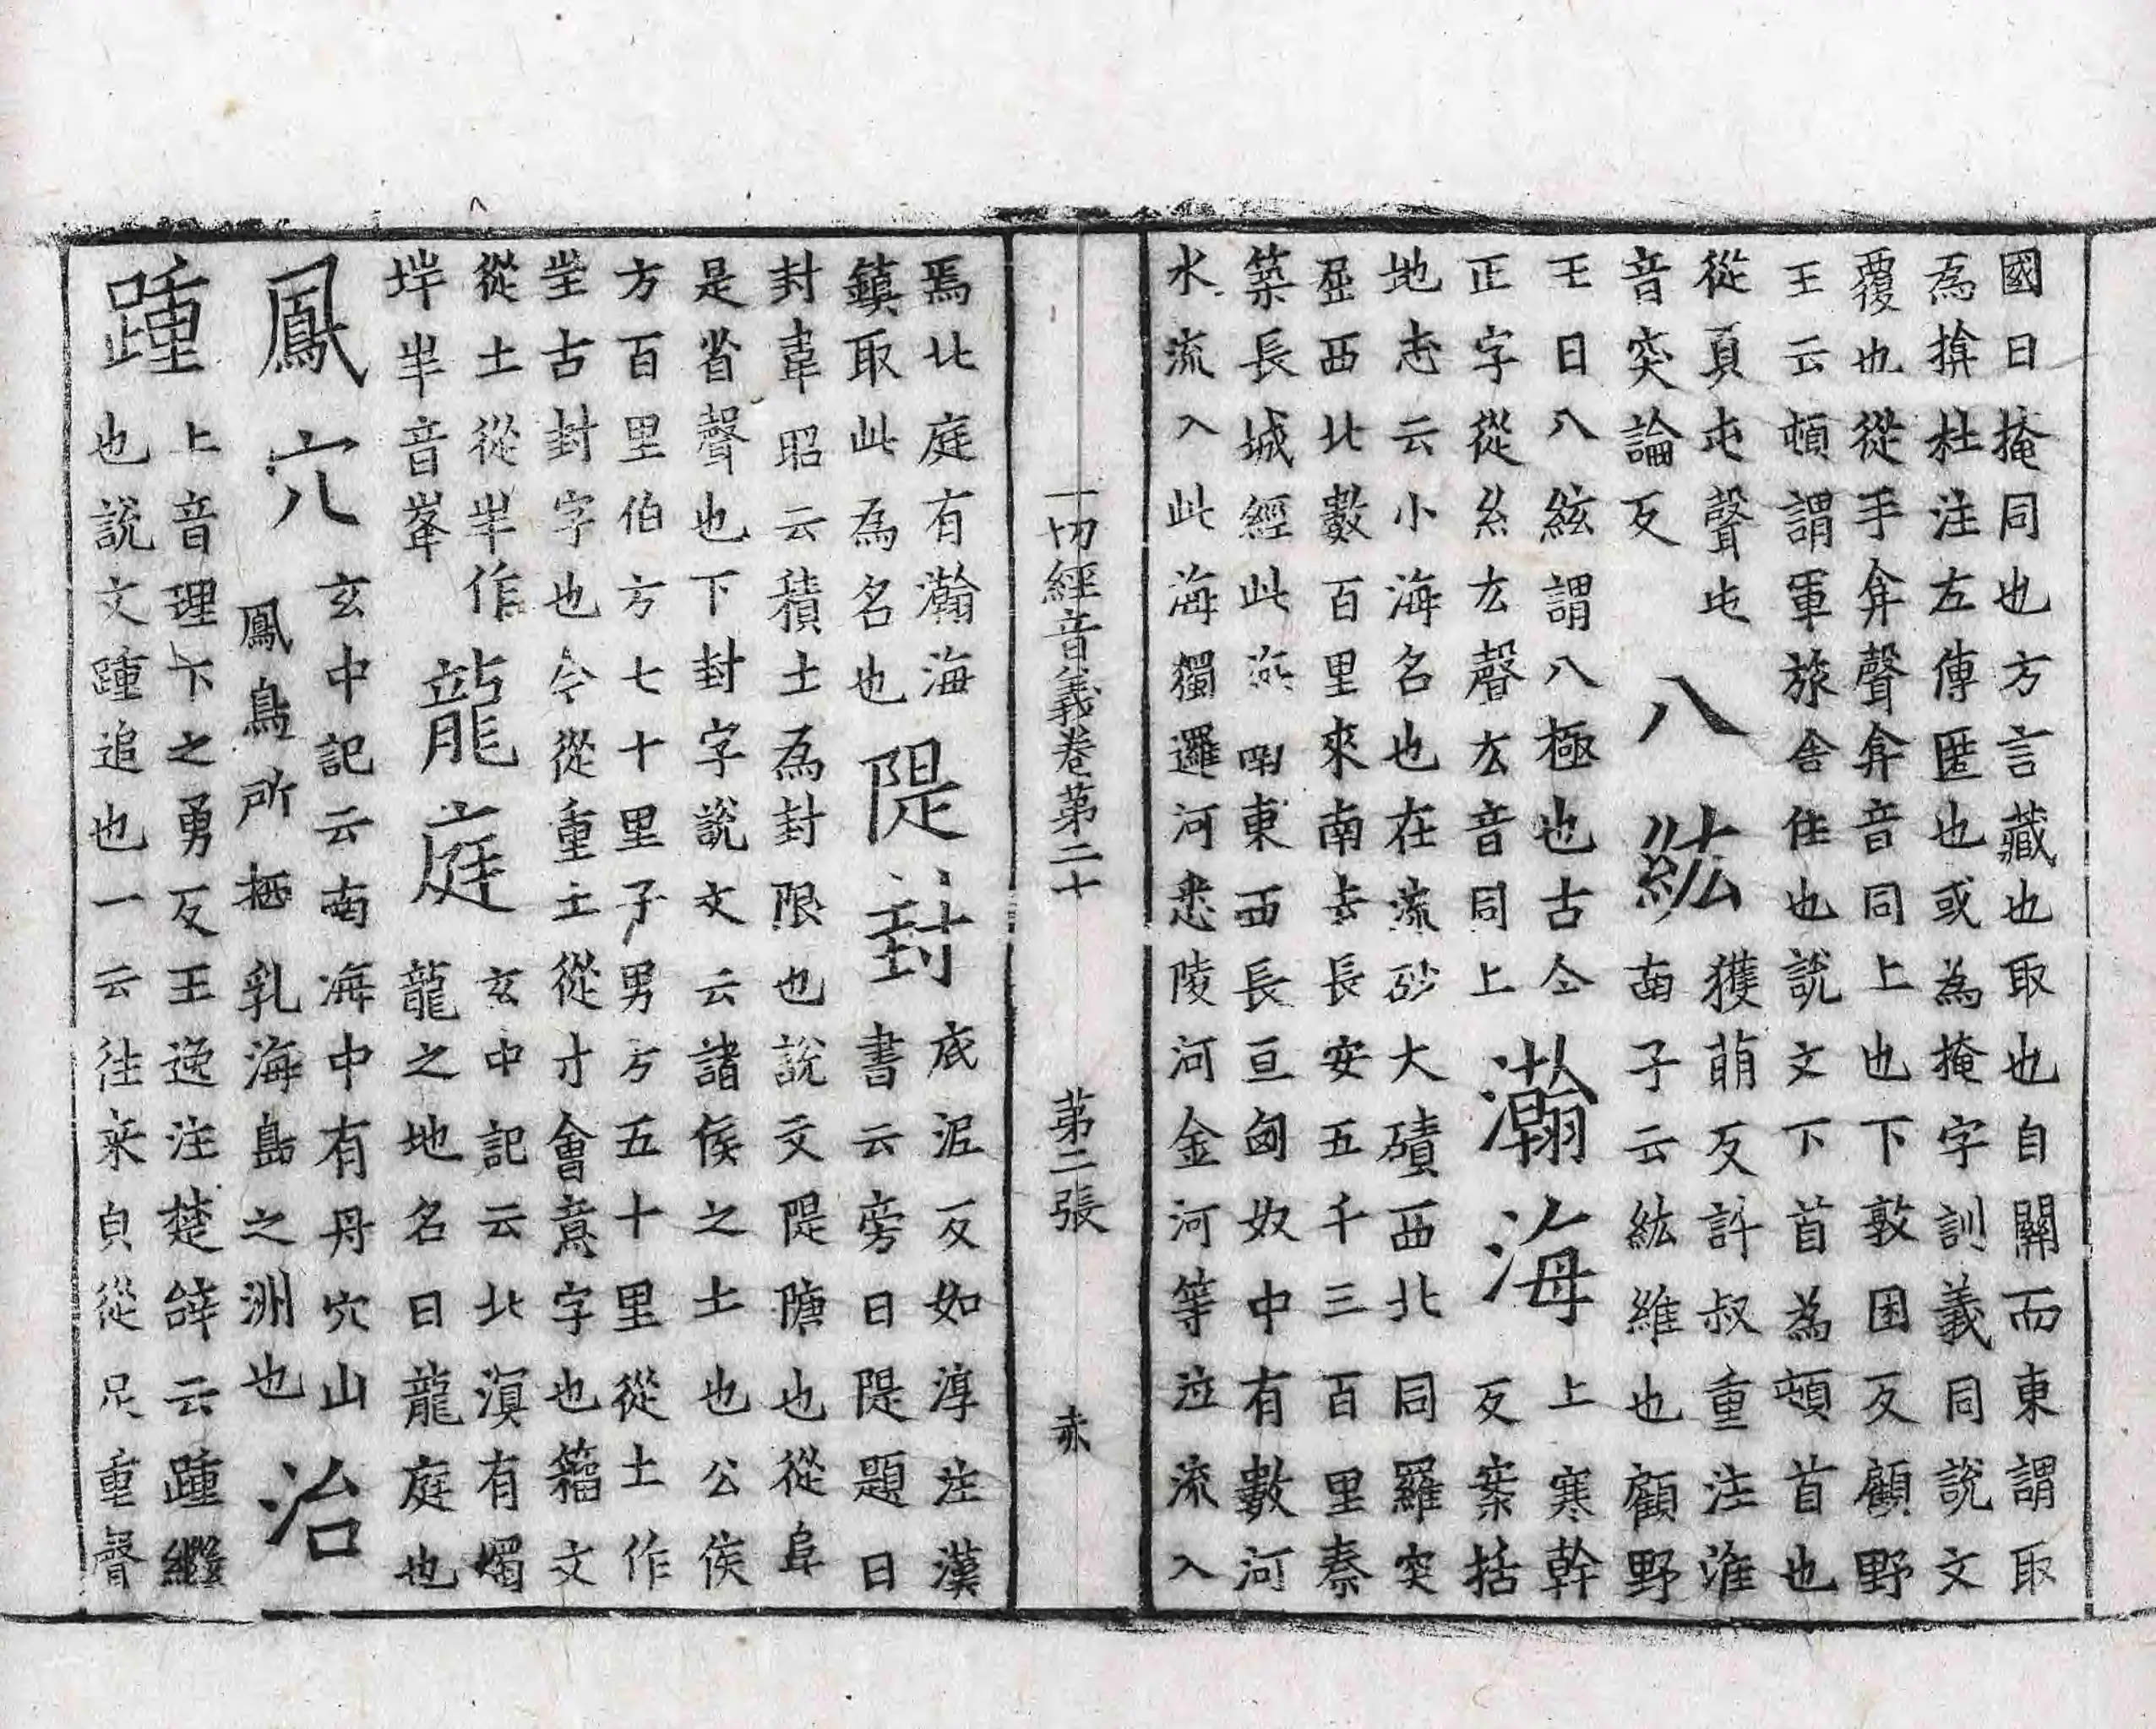 國曰掩同也方言藏也取也自關而東謂取
為揜杜注左傳匿也或為掩字訓義同說文
覆也從手弇聲弇音同上也下敦困反顧野
王云頓謂軍旅舍住也說文下首為頓首也
從頁屯聲屯
音突論反
八紘
獲萌反許叔重注淮
南子云紘維也顧野
王曰八紘謂八極也古今
正字從糸厷聲厷音同上
瀚海
上寒幹
反案括
地志云小海名也在流砂大磧西北同羅突
厥西北數百里來南去長安五千三百里秦
築長城經此海南東西長亘匈奴中有數河
水流入此海獨邏河悉陵河金河等泣流入
一切經音義卷第二十
第二張
赤
焉北庭有瀚海
鎮取此為名也
隄封
底泥反如淳注漢
書云旁曰隄題曰
封韋昭云積土為封限也說文隄隄塘也從阜
是省聲也下封字說文云諸侯之土也公侯
方百里伯方七十里子男方五十里從土作
𡉚古封字也今從重土從寸會意字也籀文
從土從丰作
𡊋丰音峯
龍庭
玄中記云北溟有燭
龍之地名曰龍庭也
鳳穴
玄中記云南海中有丹穴山
鳳鳥所栖乳海島之洲也
治
踵
上音理下之勇反王逸注楚辝云踵繼
也說文踵追也一云往来皃從足重聲